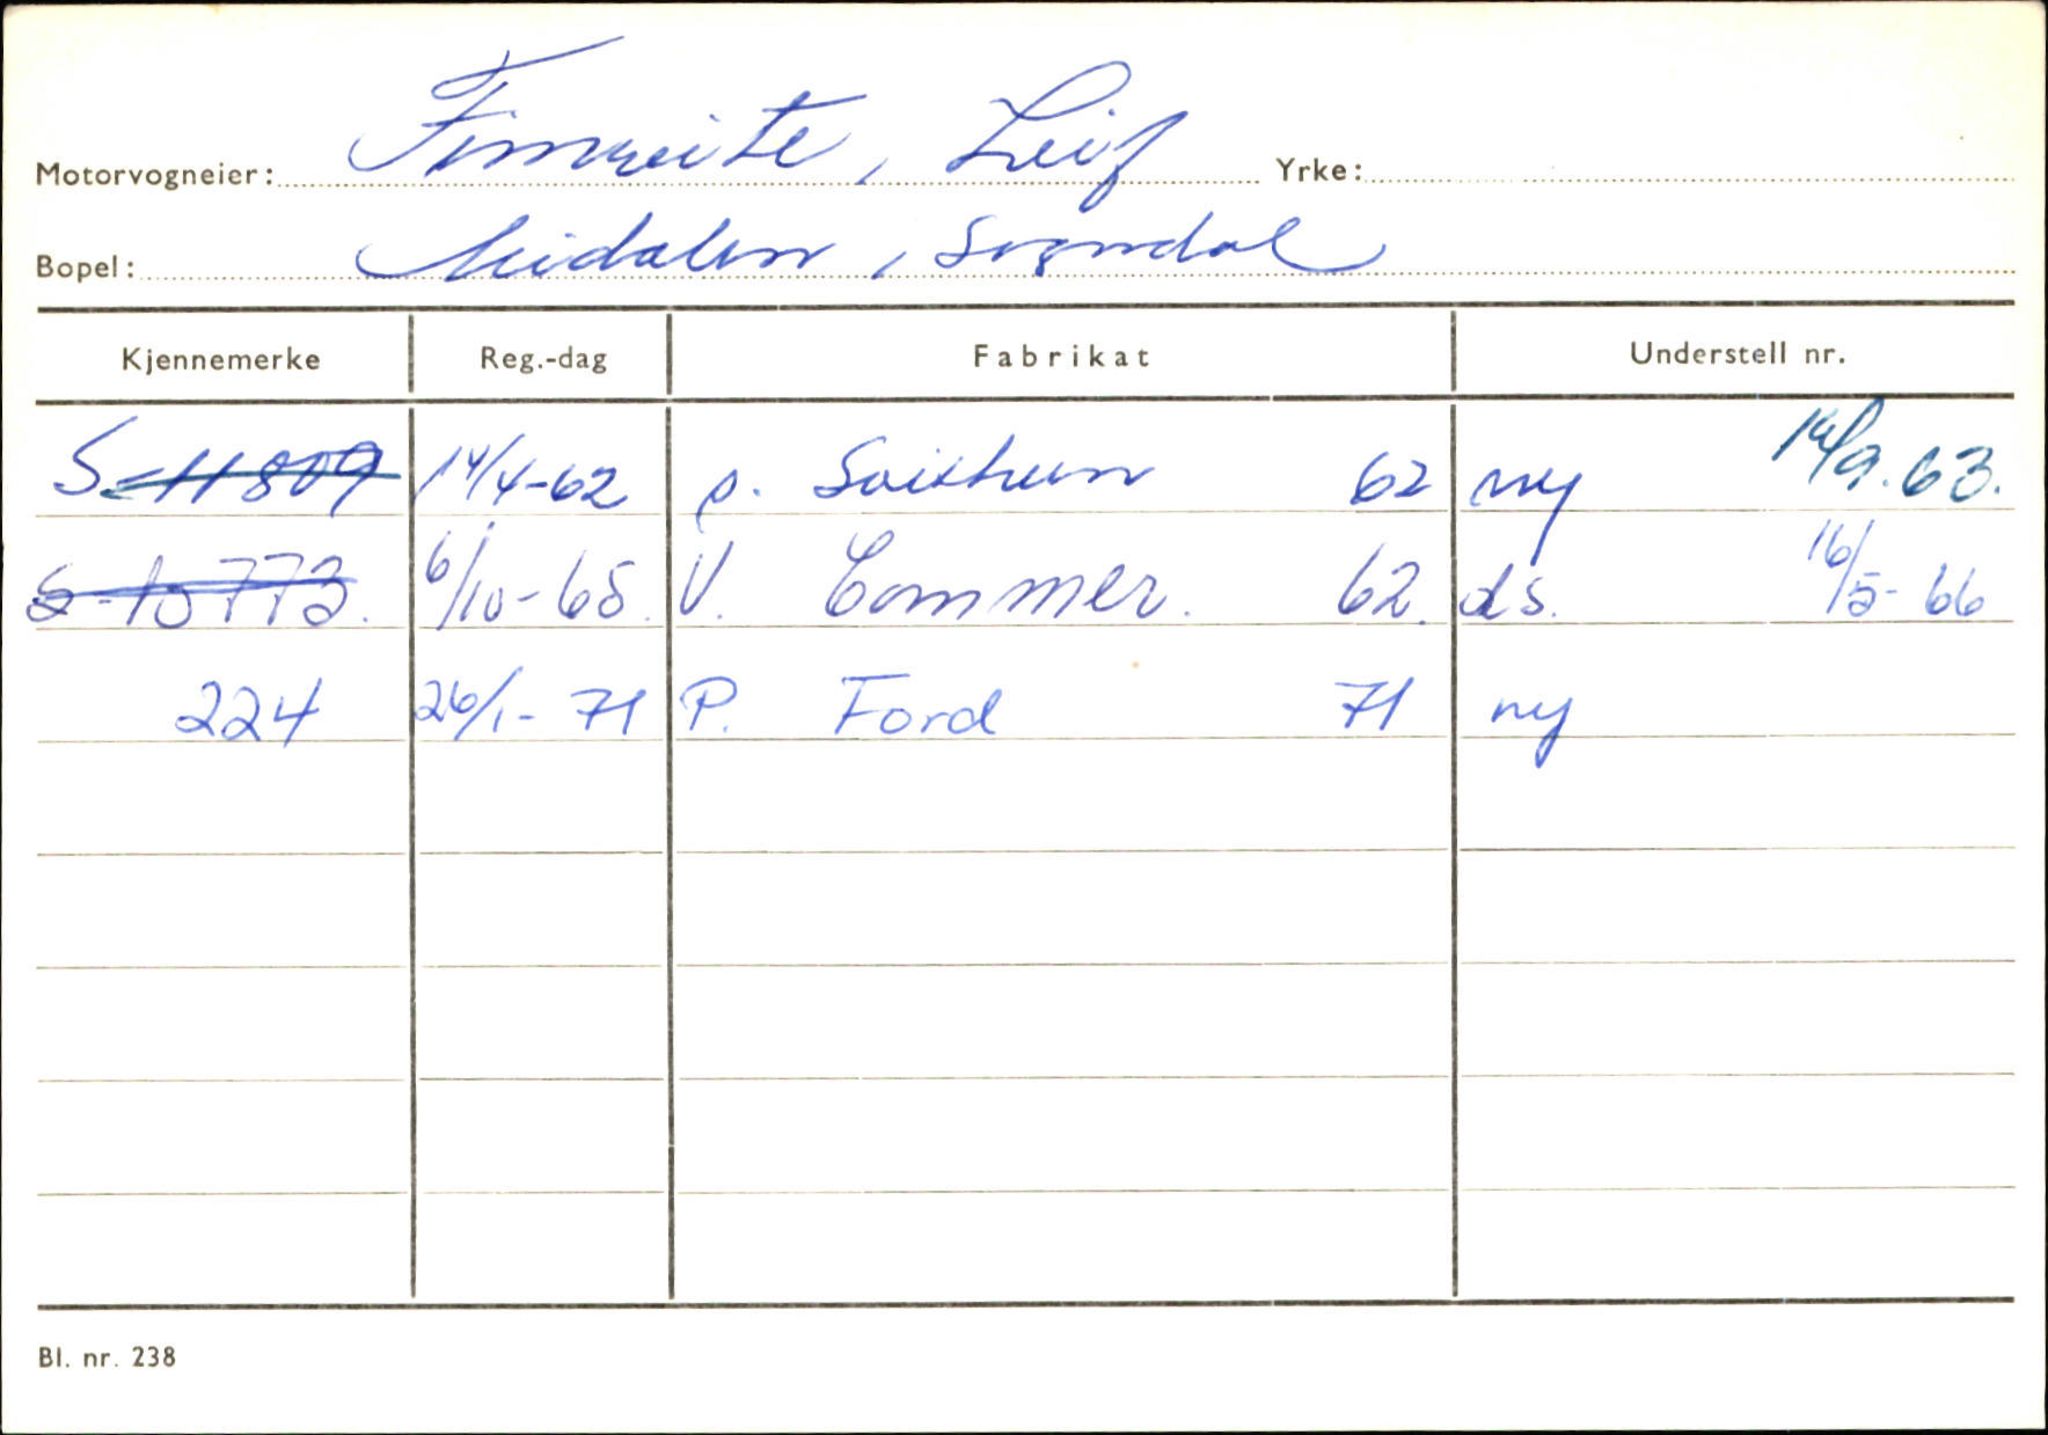 Motorvogneier: Fimreite, Leif Yrke:
Bopel: Leidalen, Sogndal
Kjennemerke Reg.-dag Fabrikat Understell nr.
S-11809 14/4-62 p. Svithun 62 ny 14/9.63.
S-10773. 6/10-65. V. Commer. 62. ds. 16/5-66
224 26/1-71 P. Ford 71 ny
Bl. nr. 238